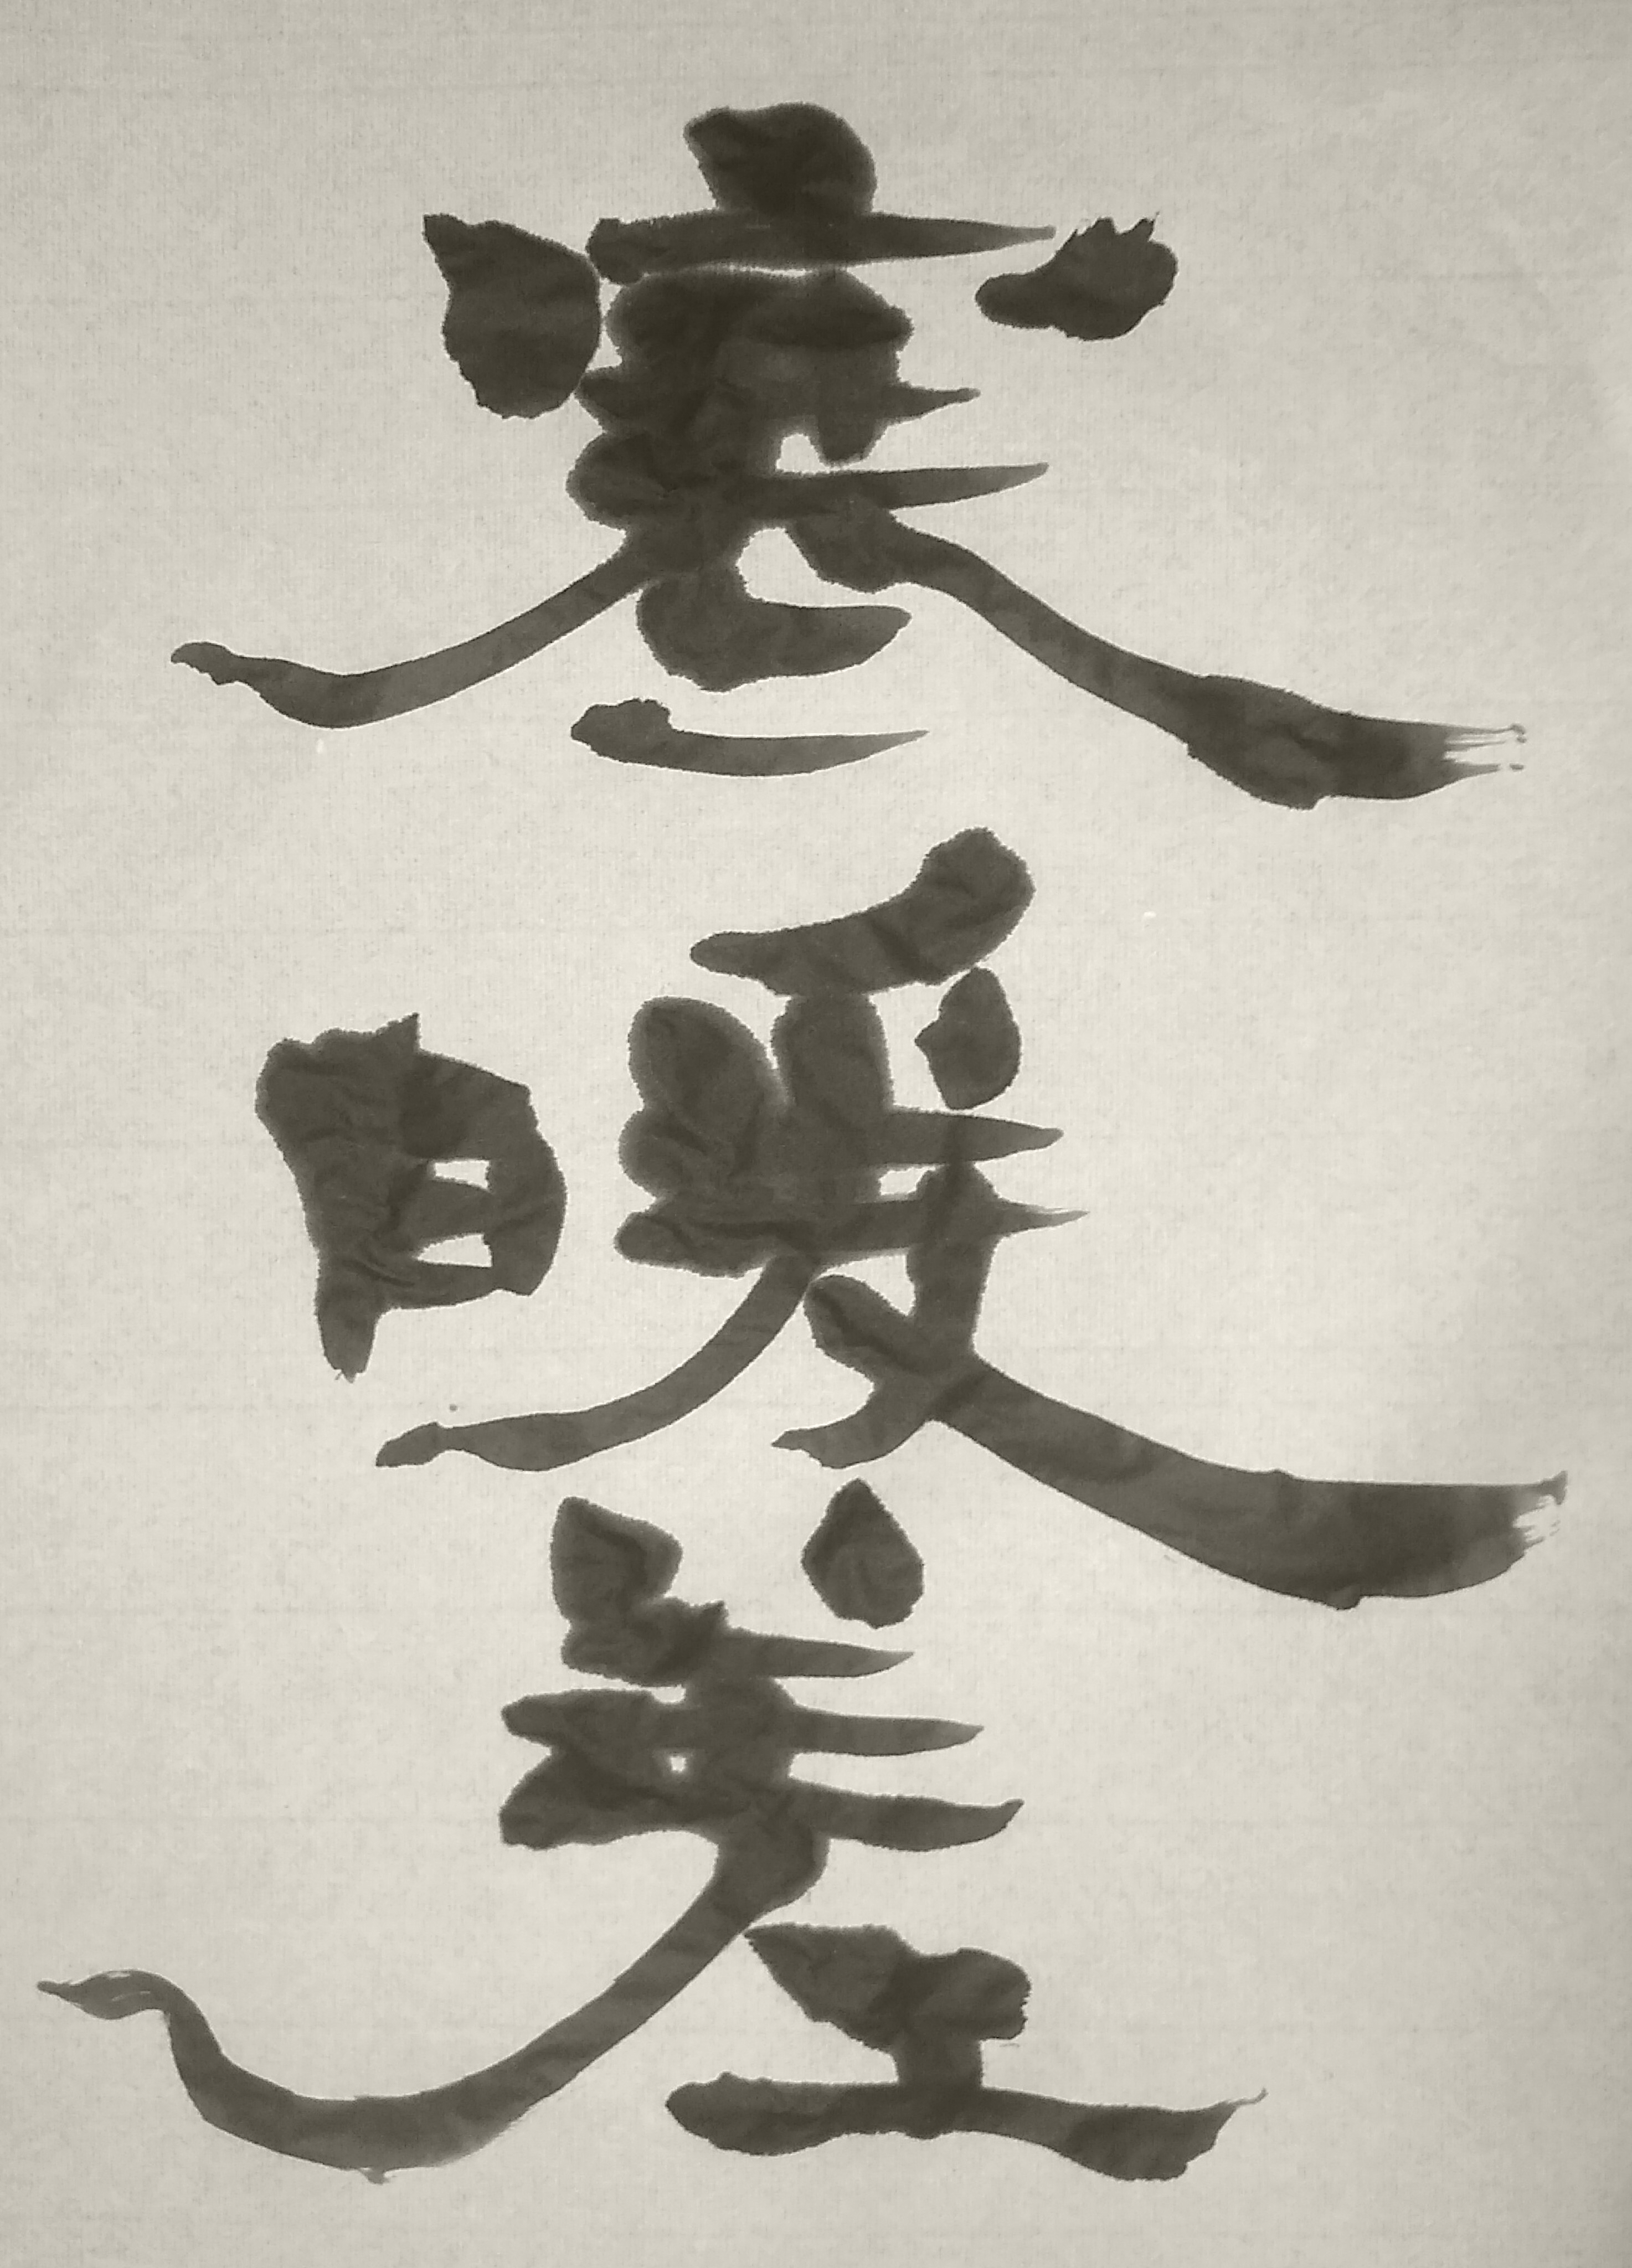 寒暖差